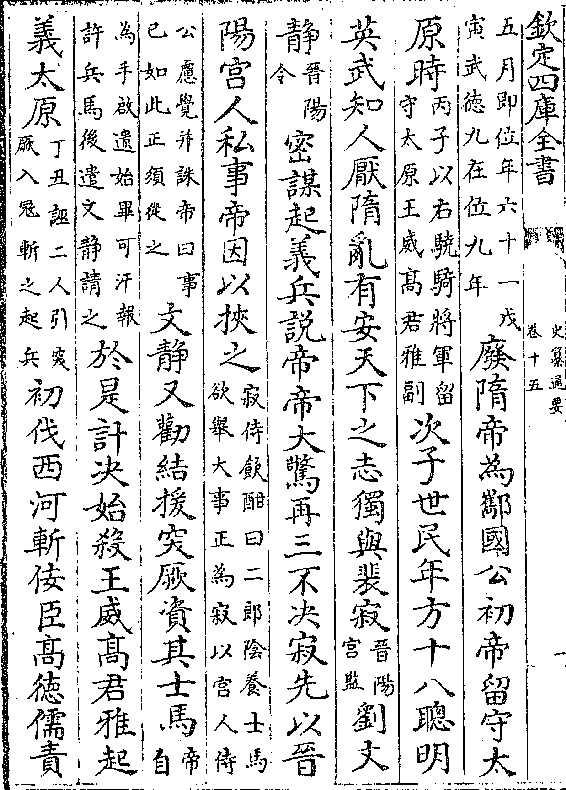 欽定四庫全書
史纂通要
卷十五
五月即位年六十一戊
寅武徳九在位九年
廢隋帝為酅國公初帝留守太
原時
丙子以右驍騎將軍留
守太原王威髙君雅副
次子世民年方十八聰明
英武知人厭隋亂有安天下之志獨與裴寂
晉陽
宫監
劉文
静
晉陽
令
密謀起義兵説帝帝大驚再三不决寂先以晉
陽宫人私事帝因以挾之
寂侍飲酣曰二郎陰養士馬
欲舉大事正為寂以宫人侍
公慮覺并誅帝曰事
已如此正須從之
文静又勸結援突厥資其士馬
帝
自
為手啟遺始畢可汗報
許兵馬後遣文静請之
於是計决始殺王威髙君雅起
義太原
丁丑誣二人引突
厥入冦斬之起兵
初伐西河斬佞臣髙徳儒責